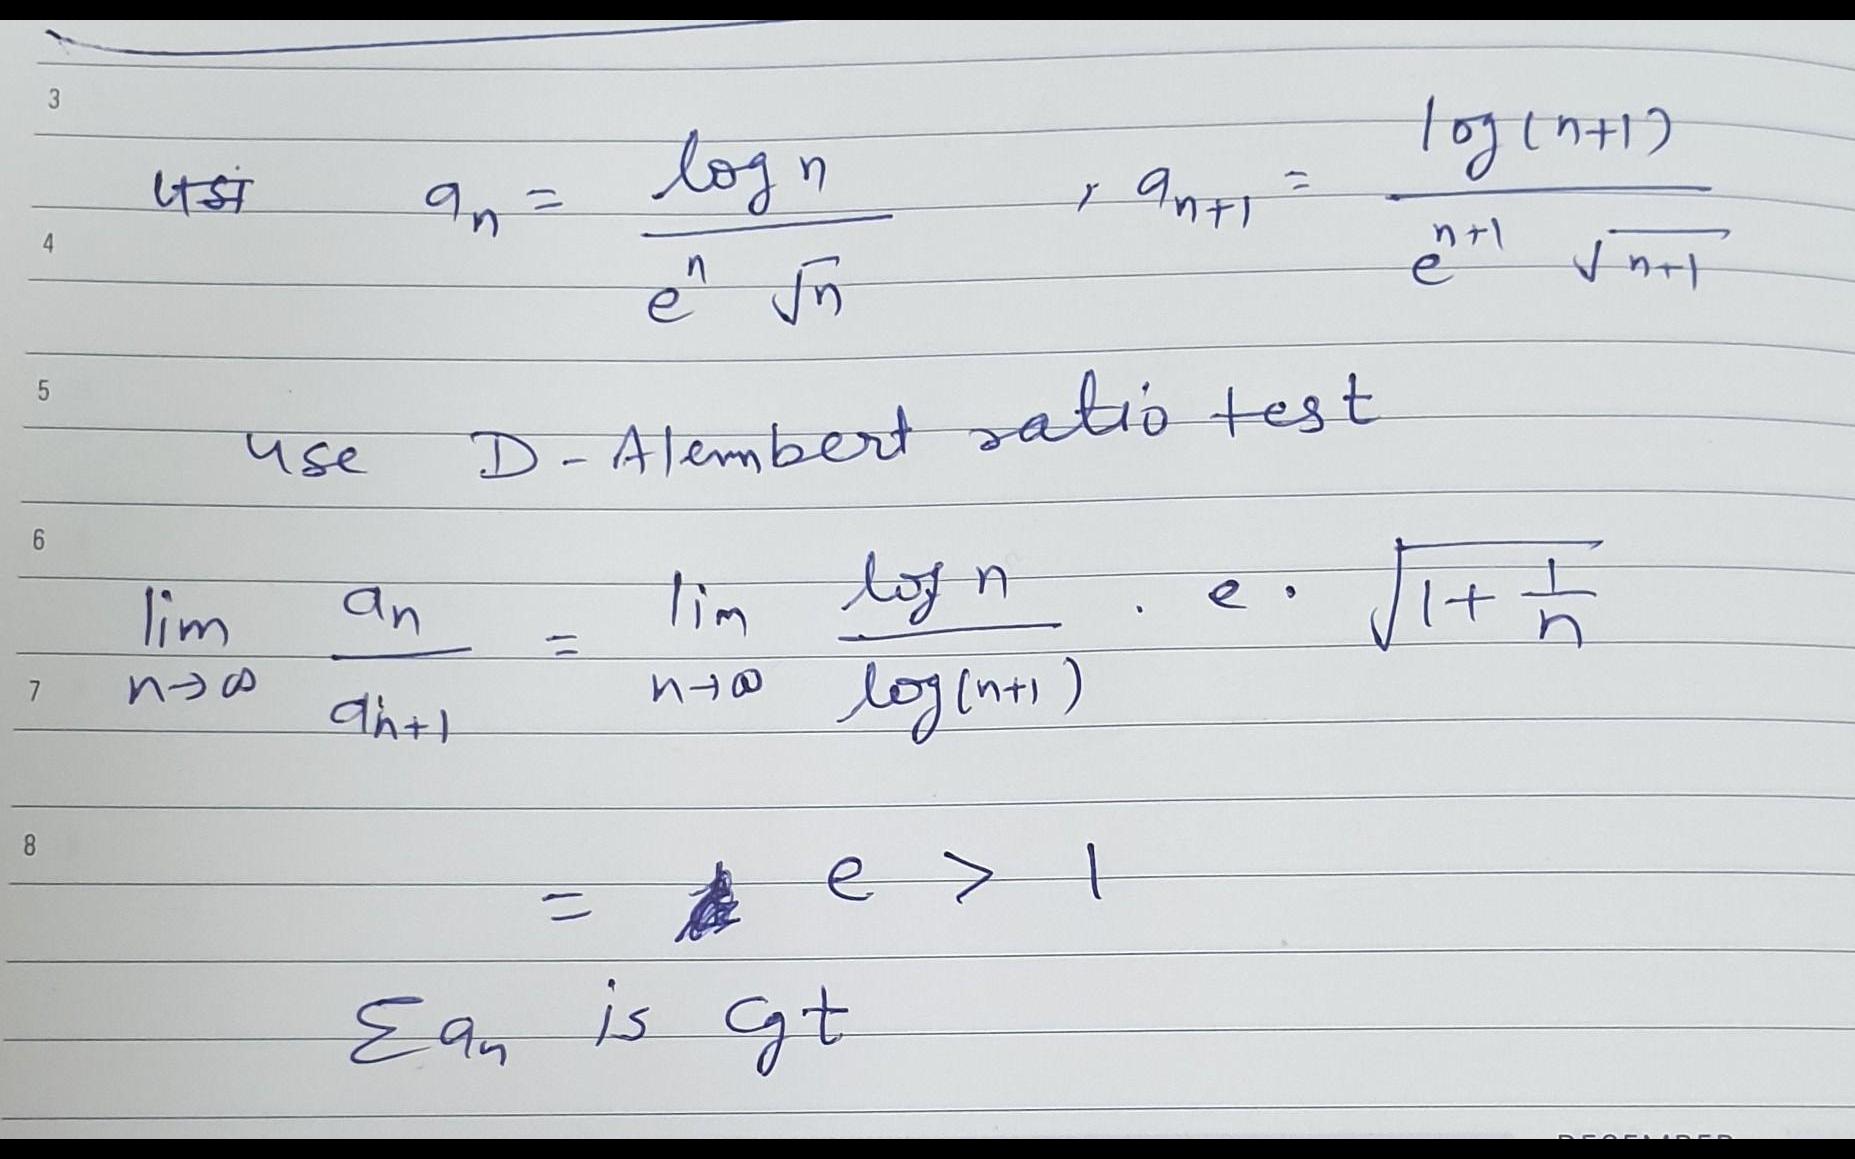 3
यहां aₙ = log n / (eⁿ √n) , aₙ₊₁ = log(n+1) / (eⁿ⁺¹ √(n+1))
4
5
use D-Alembert ratio test
6
lim n→∞ aₙ / aₙ₊₁ = lim n→∞ log n / log(n+1) . e . √(1 + 1/n)
7
8
= e > 1
Σaₙ is cgt